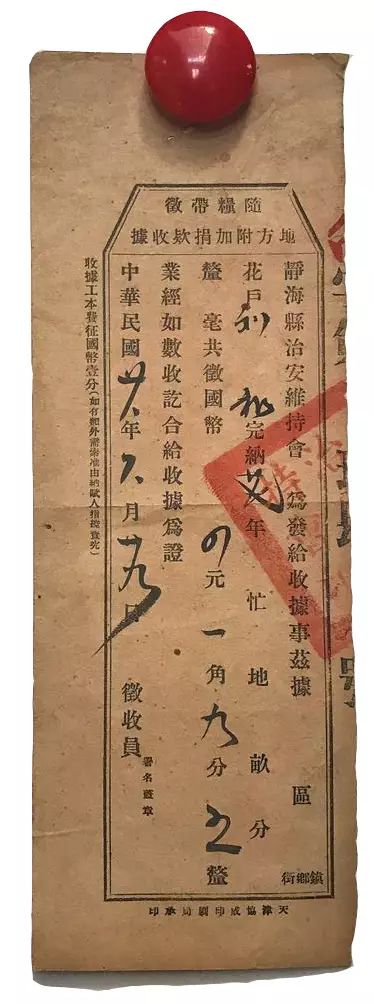 隨糧帶徵
地方附加捐欵收據
靜海縣治安維持會 爲發給收據事茲據 區 鎮鄉街
花戶 完納 年 忙 地 畝 分
釐 毫共徵國幣 四元一角九分五釐
業經如數收訖合給收據爲證
中華民國廿八年 月廿九日 徵收員 署名蓋章
收據工本費征國幣壹分(如有額外需索准由納賦人指控查究)
天津協成印刷局承印